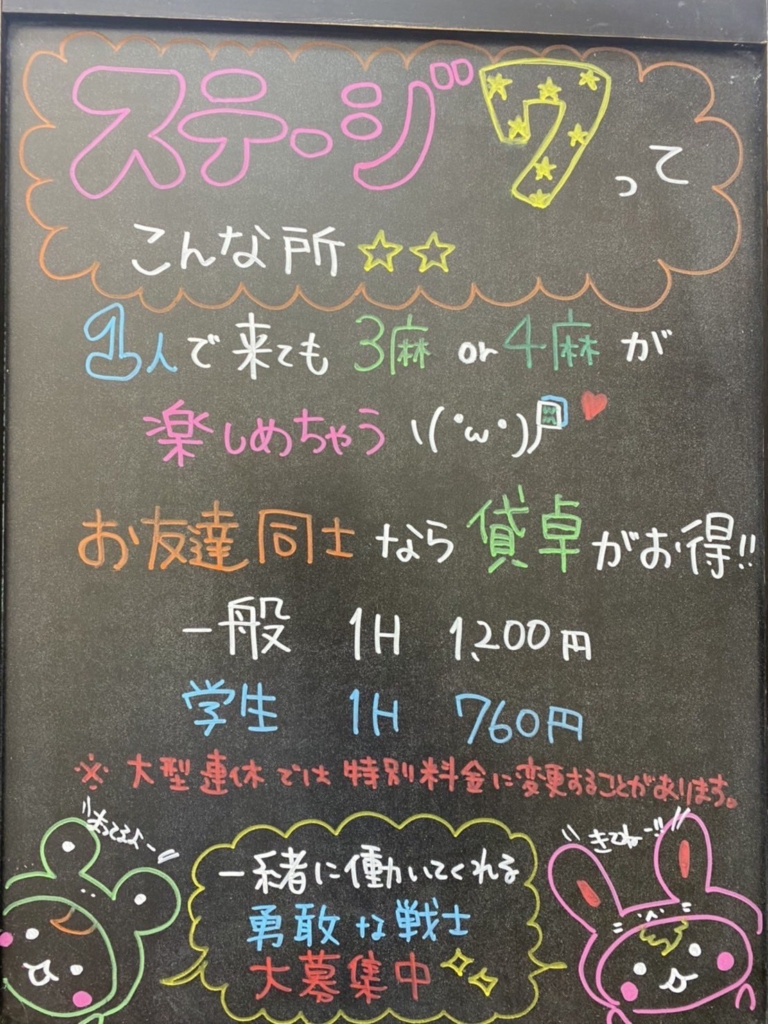 ステージ7って
こんな所☆☆
1人で来ても 3麻 or 4麻 が
楽しめちゃう \(・ω・)
お友達同士 なら 貸卓がお得!!
一般 1H 1,200円
学生 1H 760円
※ 大型連休では特別料金に変更することがあります。
まってるよー
きてねー!!
一緒に働いてくれる
勇敢な戦士
大募集中